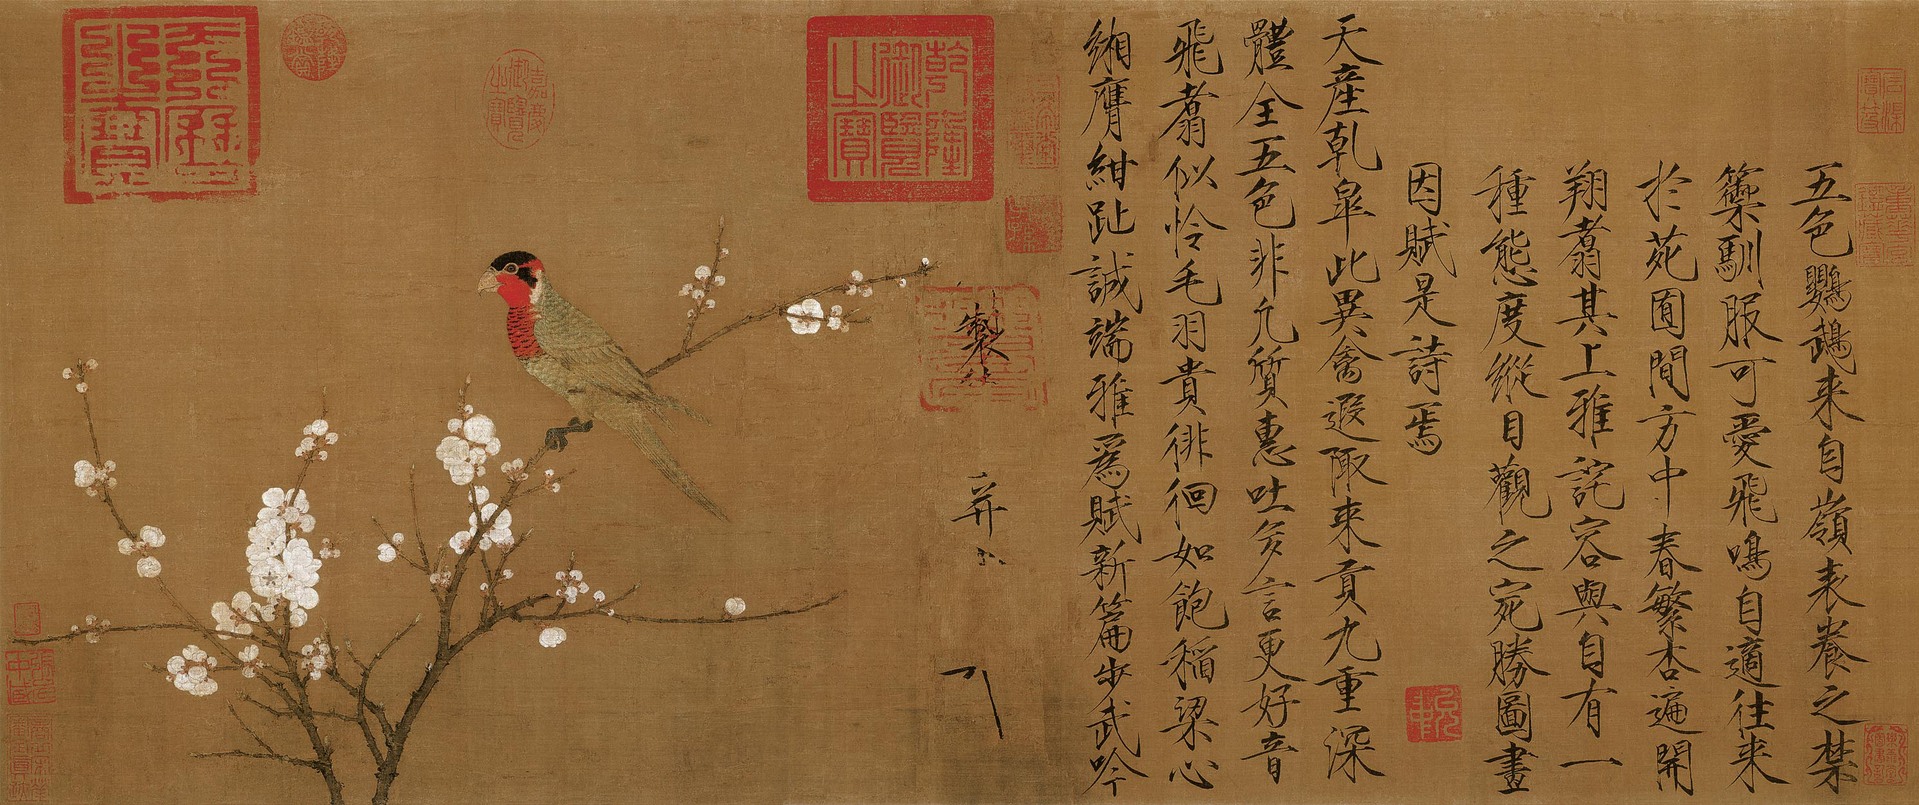 五色鸚鵡来自嶺表養之禁
籞馴服可愛飛鳴自適往来
於苑囿間方中春繁杏遍開
翔翥其上雅詫容與自有一
種態度縱目觀之宛勝圖畫
因賦是詩焉
天産乾皐此異禽遐陬来貢九重深
體全五色非凡質惠吐多言更好音
飛翥似怜毛羽貴徘徊如飽稲粱心
緗膺紺趾誠端雅爲賦新篇步武吟
製 并
乾隆御覽之寶
嘉慶御覽之寶
天曆之寶